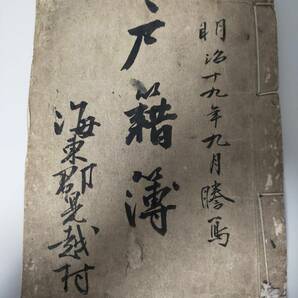 明治十九年九月謄寫
戸籍簿
海東郡見越村